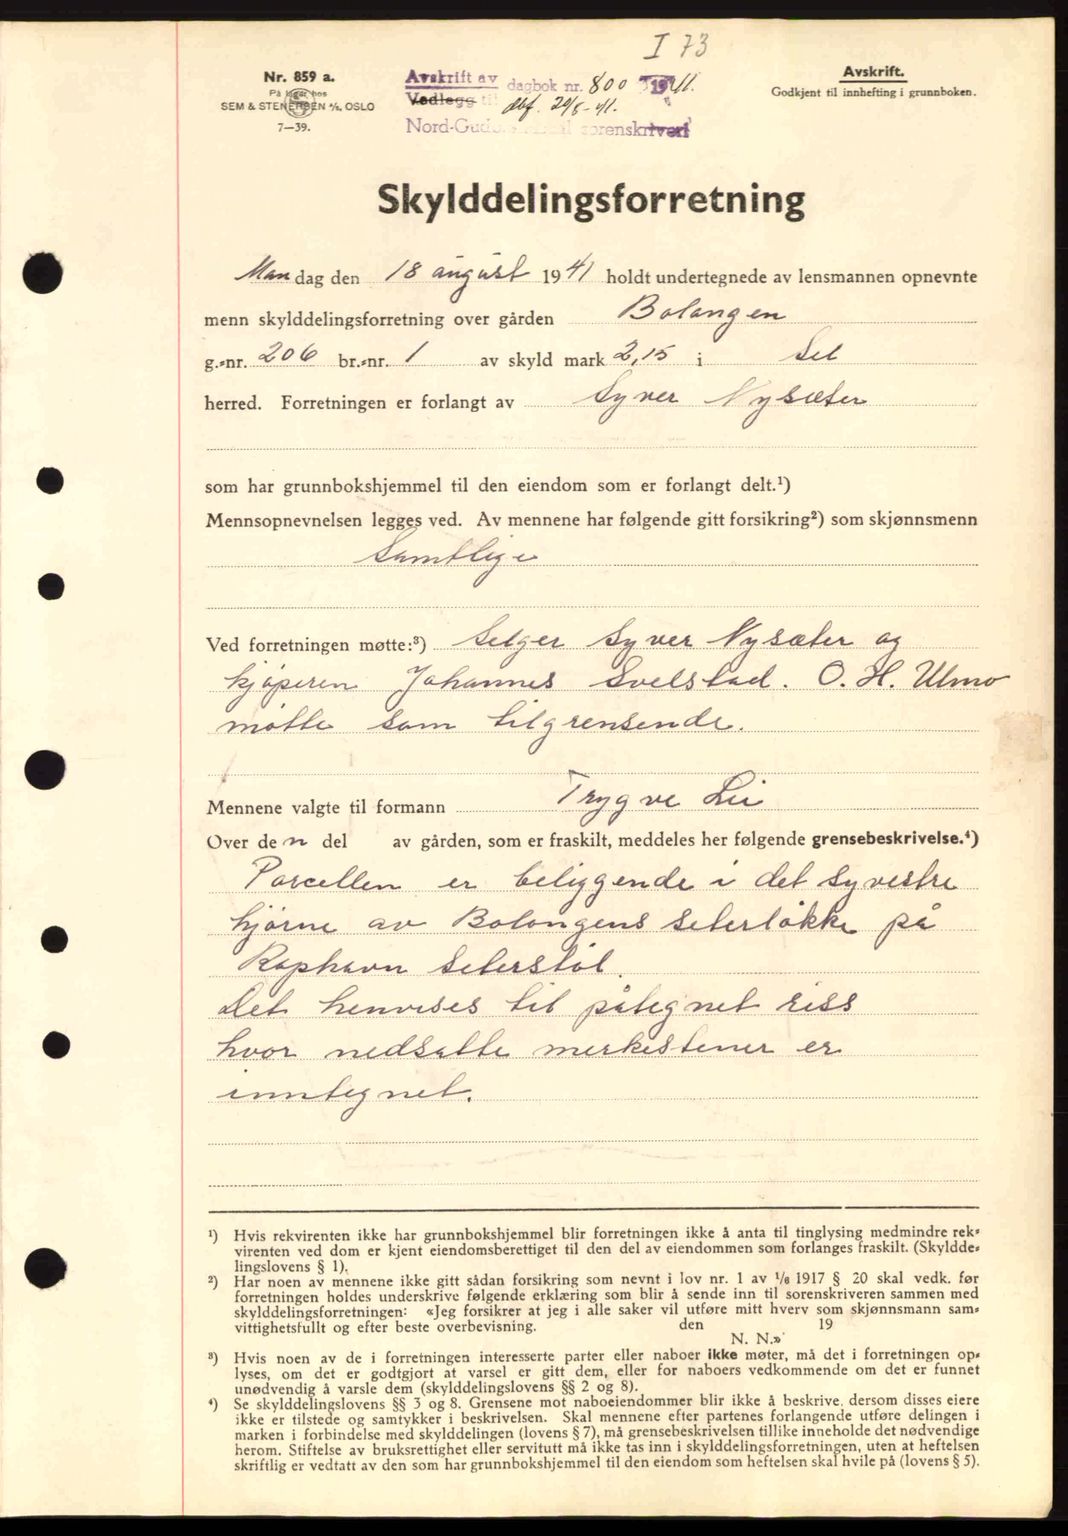 I 73
Nr. 859 a.
På lager hos
SEM & STENERSEN A/S, OSLO
7—39.
Avskrift av
Vedlegg til dagbok nr. 800 1941.
dbf. 20/8-41.
Nord-Gudbrandsdal sorenskriveri
Avskrift.
Godkjent til innhefting i grunnboken.
Skylddelingsforretning
Mandag den 18 august 1941 holdt undertegnede av lensmannen opnevnte
menn skylddelingsforretning over gården Bolongen
g.-nr. 206 br.-nr. 1 av skyld mark 2,15 i Sel
herred. Forretningen er forlangt av Syver Nysæter
som har grunnbokshjemmel til den eiendom som er forlangt delt.¹)
Mennsopnevnelsen legges ved. Av mennene har følgende gitt forsikring²) som skjønnsmenn
Samtlige
Ved forretningen møtte:³) Selger Syver Nysæter og
kjøperen Johannes Svelstad. O. H. Ulmo
møtte som tilgrensende.
Mennene valgte til formann Trygve Lie
Over den del av gården, som er fraskilt, meddeles her følgende grensebeskrivelse.⁴)
Parcellen er beliggende i det syvestre
hjørne av Bolongens seterløkke på
Raphavn seterstøl.
Det henvises til påtegnet riss
hvor nedsatte merkestener er
inntegnet.
¹) Hvis rekvirenten ikke har grunnbokshjemmel blir forretningen ikke å anta til tinglysing medmindre rek-
virenten ved dom er kjent eiendomsberettiget til den del av eiendommen som forlanges fraskilt. (Skyldde-
lingslovens § 1).
²) Har noen av mennene ikke gitt sådan forsikring som nevnt i lov nr. 1 av 1/6 1917 § 20 skal vedk. før
forretningen holdes underskrive følgende erklæring som blir å sende inn til sorenskriveren sammen med
skylddelingsforretningen: «Jeg forsikrer at jeg i alle saker vil utføre mitt hverv som skjønnsmann sam-
vittighetsfullt og efter beste overbevisning. den 19
N. N.»
³) Hvis noen av de i forretningen interesserte parter eller naboer ikke møter, må det i forretningen op-
lyses, om det er godtgjort at varsel er gitt dem, eller for naboers vedkommende om det er funnet
unødvendig å varsle dem (skylddelingslovens §§ 2 og 8).
⁴) Se skylddelingslovens §§ 3 og 8. Grensene mot naboeiendommer blir ikke å beskrive, dersom disses eiere
ikke er tilstede og samtykker i beskrivelsen. Skal mennene efter partenes forlangende utføre delingen i
marken i forbindelse med skylddelingen (lovens § 7), må grensebeskrivelsen tillike inneholde det nødvendige
herom. Stiftelse av bruksrettighet eller servitutt må ikke tas inn i skylddelingsforretningen, uten at heftelsen
skriftlig er vedtatt av den som har grunnbokshjemmel til den eiendom som heftelsen skal hvile på (lovens § 5).